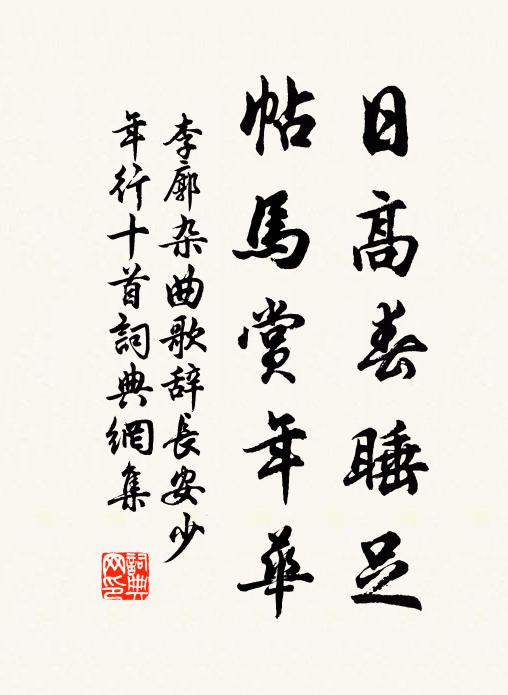 日高春睡足
帖馬賞年華
李廓杂曲歌辞長安少
年行十首詞典網集
詞典网印